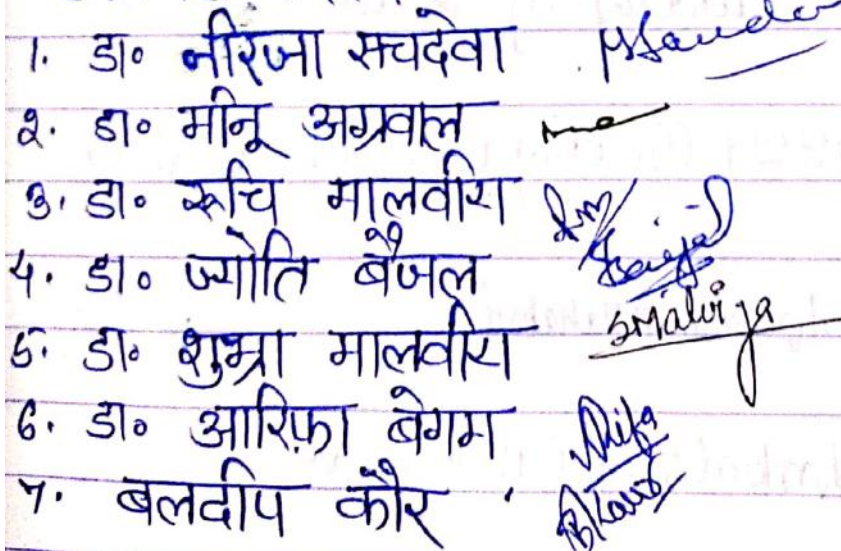 1. डा॰ नीरजा सचदेवा
२. डा॰ मीनू अग्रवाल
३. डा॰ रूचि मालवीय
४. डा॰ ज्योति बैजल
५. डा॰ शुभ्रा मालवीय smalviya
6. डा॰ आरिफ़ा बेगम Arifa
7. बलदीप कौर BKaur